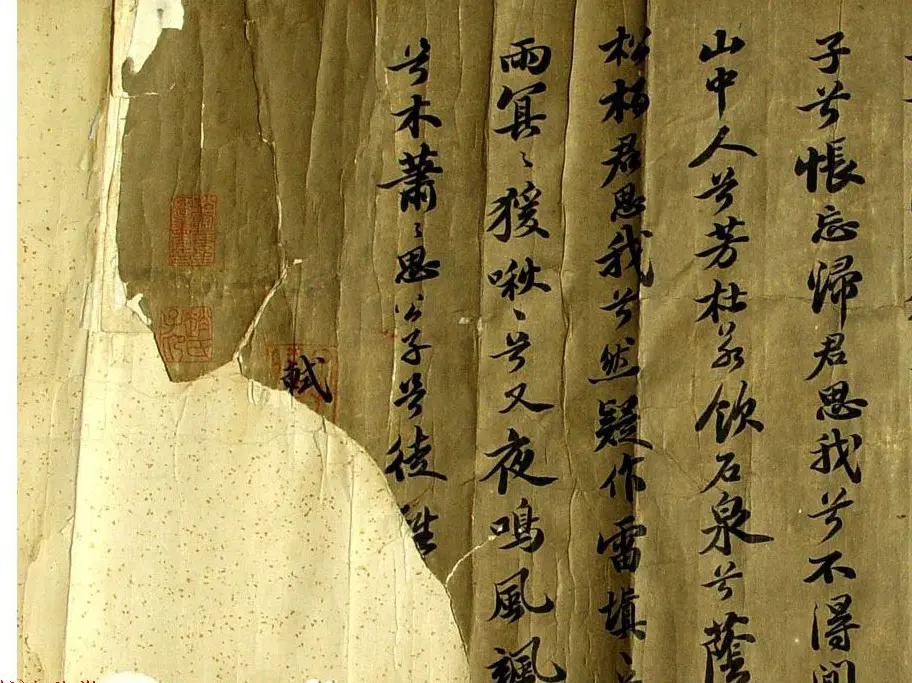 子兮悵忘歸君思我兮不得
山中人兮芳杜若飲石泉兮蔭
松柏君思我兮然疑作雷填〻
雨冥〻猨啾〻兮又夜鳴風颯
兮木蕭〻思公子兮徒
軾